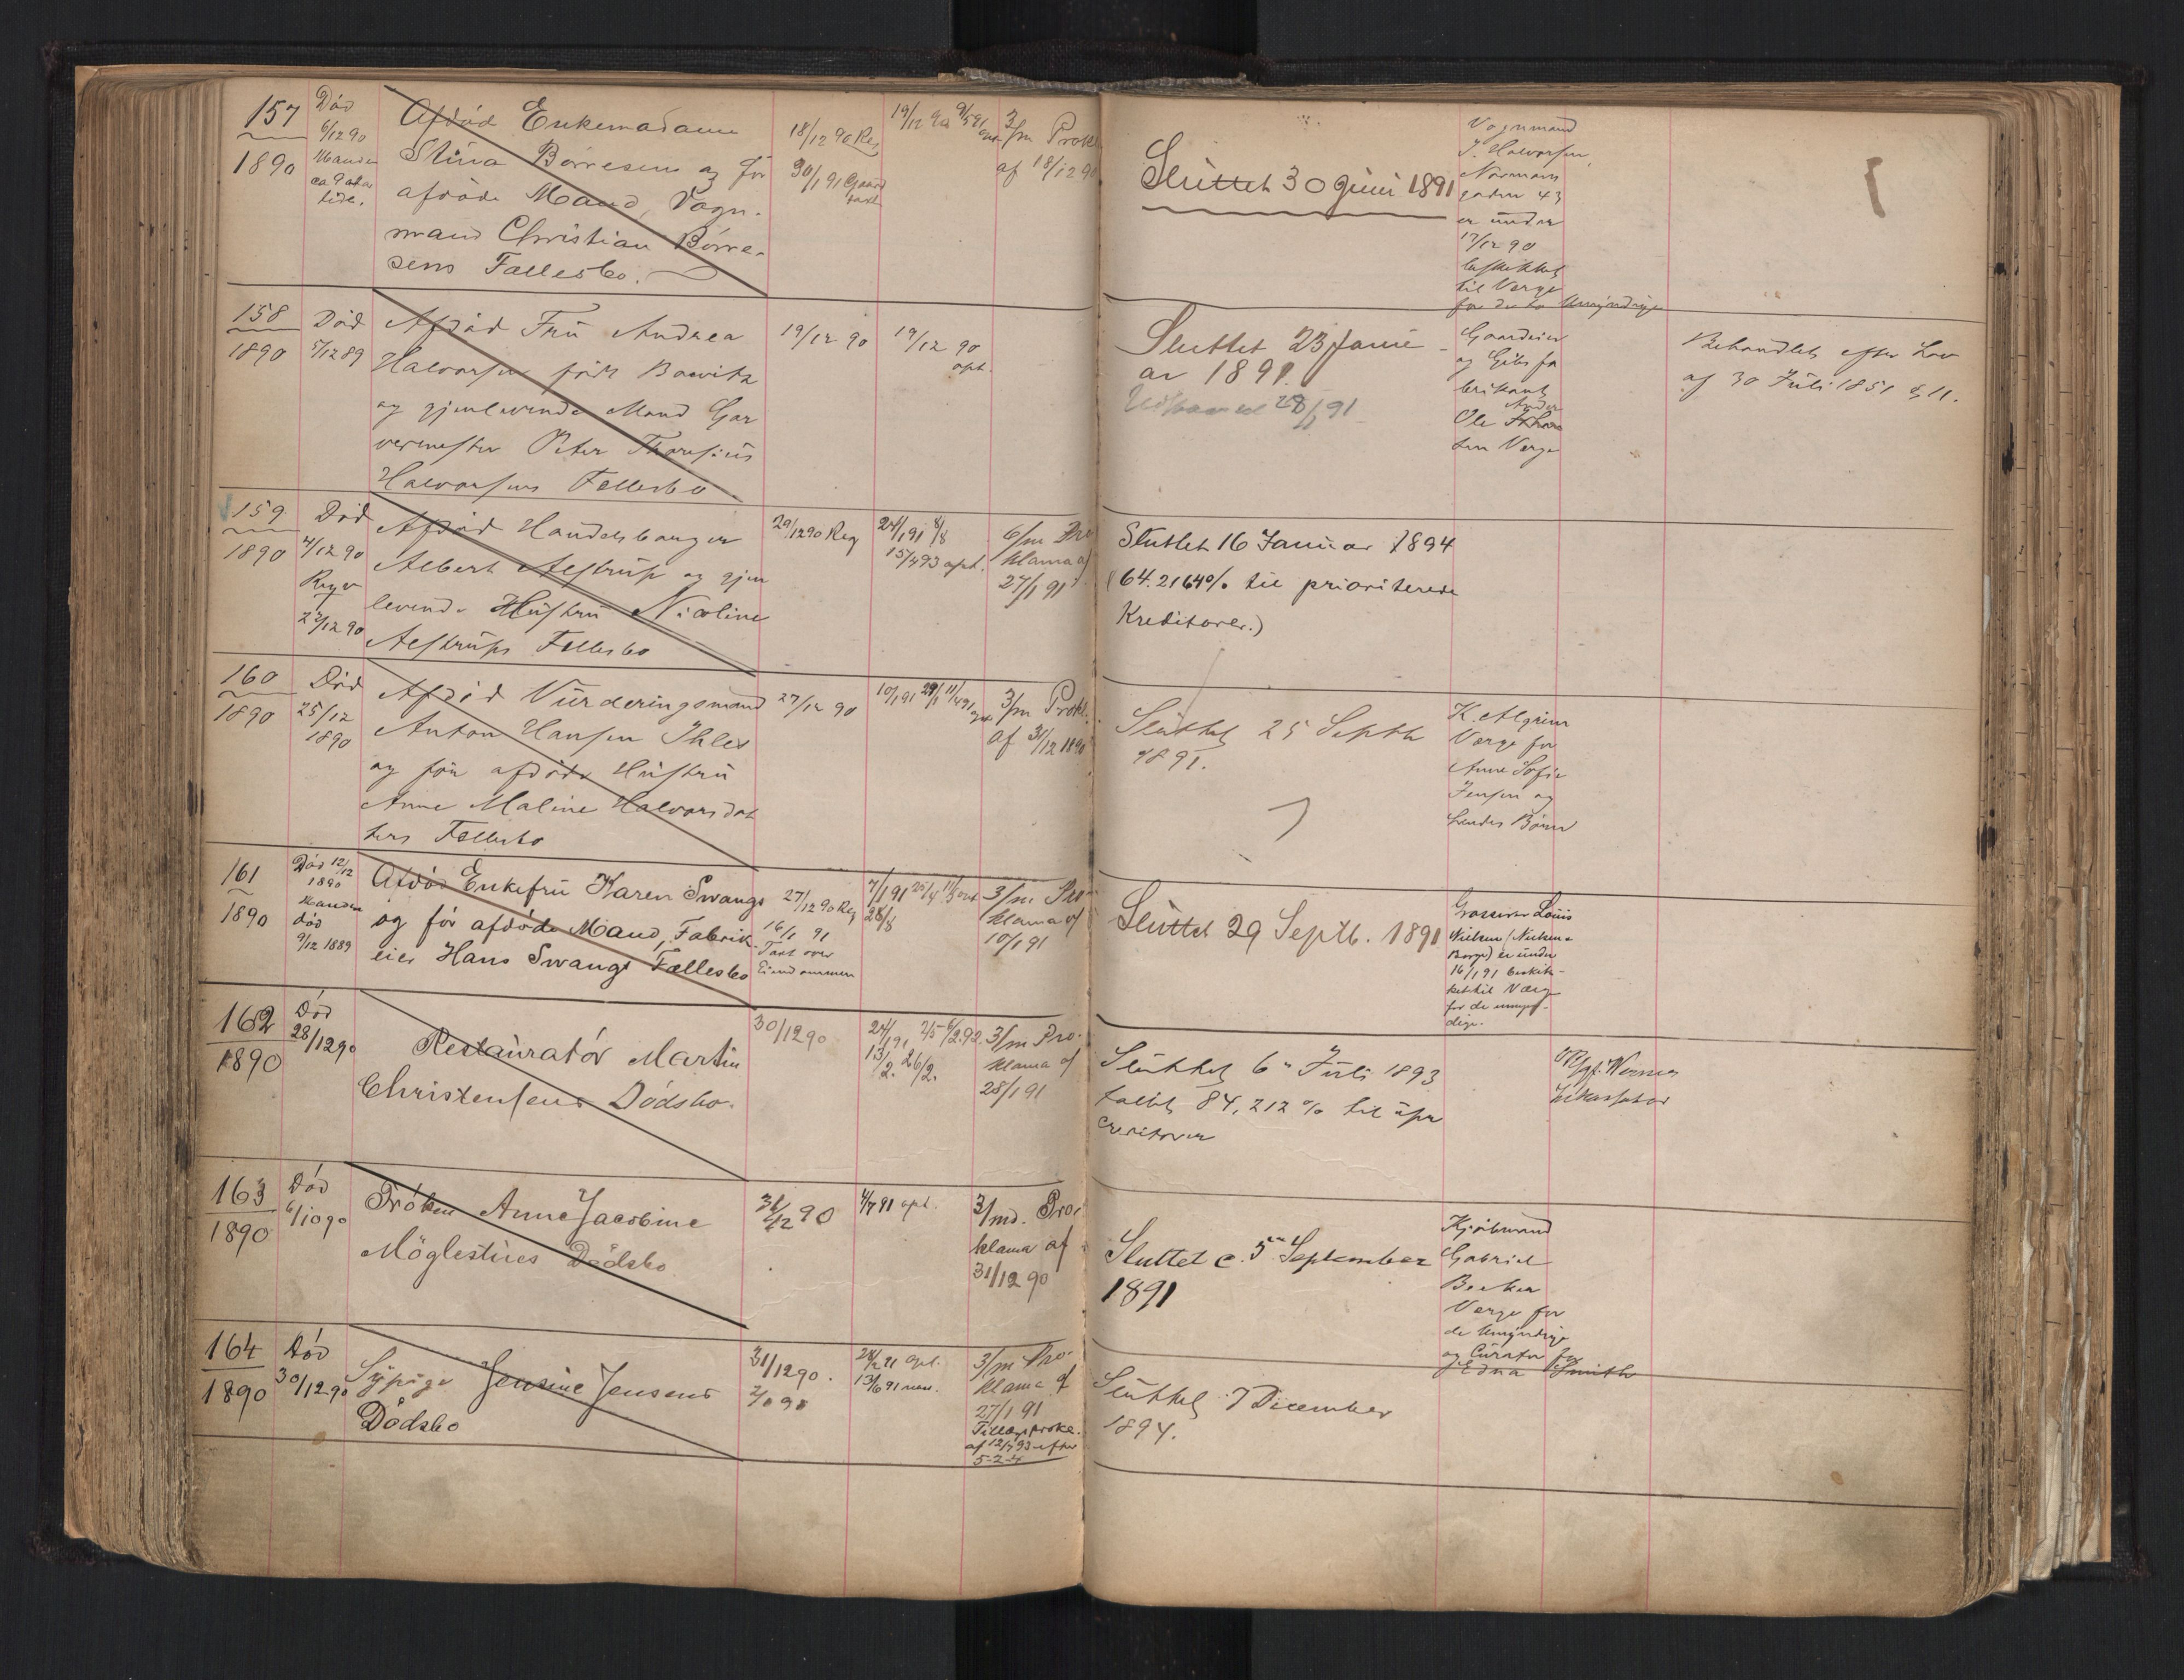 157
1890
Död
6/12 90
Manden
ca 9 aar
tid.
Afdöd Enkemadame
Stina Börresen og för
afdöde Mand, Vogn-
mand Christian Börre-
sens Fællesbo.
18/12 90 Reg
30/1 91 Gaard
taxt
19/12 90 9/5 91
3/m Prokl
af 18/12 90
Sluttet 30 Juni 1891
Vognmand
J. Halvorsen,
Normans
gaden 43
er under
17/12 90
beskikket
til Værge
for de to Umyndige
158
1890
Död
5/12 89
Afdöd Fru Andrea
Halvorsen född Bowitz
og gjenlevende Mand Gar
vermester Peter Thoresius
Halvorsens Fællesbo
19/12 90
19/12 90
opt.
Sluttet 23 Janu-
ar 1891.
28/1 91
Gaardeier
og Gibsfa
brikant
Ole
sen Værge
Behandlet efter Lov
af 30 Juli 1851 § 11.
159
1890
Död
4/12 90
Reg
27/12 90
Afdöd Handelsborger
Albert Aestrup og gjen
levende Hustru Nicoline
Aestrups Fællesbo
29/12 90 Reg
24/1 91 8/8
15/4 93 opt.
6/m Pro
klama af
27/1 91
Sluttet 16 Januar 1894
(64.2164% til prioriterede
Kreditorer.)
160
1890
Död
25/12
1890
Afdöd Vurderingsmand
Anton Hansen Ihles
og för afdöde Hustru
Anne Maline Halvorsdat
ters Fællesbo
27/12 90
10/1 91 29/1 11/4 91
3/m Prokl.
af 31/12 1890
Sluttet 25 Septb
1891.
K. Algrim
Værge for
Anne Sofie
Jensen og
hendes Börn
161
1890
Död 12/12
1890
Manden
död
9/12 1889
Afdöd Enkefru Karen Swangs
og för afdöde Mand, Fabrik-
eier Hans Swangs Fællesbo
27/12 90 Reg
16/1 91
Taxt over
Eiendommen
7/1 91 25/4 11/5 opt
28/8
3/m Pro
klama af
10/1 91
Sluttet 29 Septb. 1891
Grosserer Louis
Nielsen (Nielsen &
Borge) er under
16/1 91 beskik-
ket til Værge
for de umyn-
dige.
162
1890
Död
28/12 90
Restauratör Martin
Christensens Dödsbo.
30/12 90
24/1 91 2/5 6/2 92.
13/2. 26/2.
3/m Pro-
klama af
28/1 91
Sluttet 6te Juli 1893
betalt 84,212% til upr
creditorer
Inkassator
163
1890
Död
6/10 90
Fröken Anne Jacobine
Möglestues Dödsbo
31/12 90
4/7 91 opt.
3/md. Pro-
klama af
31/12 90
Sluttet c. 5te September
1891
Kjöbmand
Gabriel
Becker
Værge for
de Umyndige
og Curator for
Edna Smith
164
1890
Död
30/12 90
Sypige Jensine Jensens
Dödsbo
31/12 90.
28/2 91 opt.
13/6 91
3/m Pro-
klama af
27/1 91
Tillægsprokl.
af 12/7 93 efter
5-2-4
Sluttet 7 December
1894.